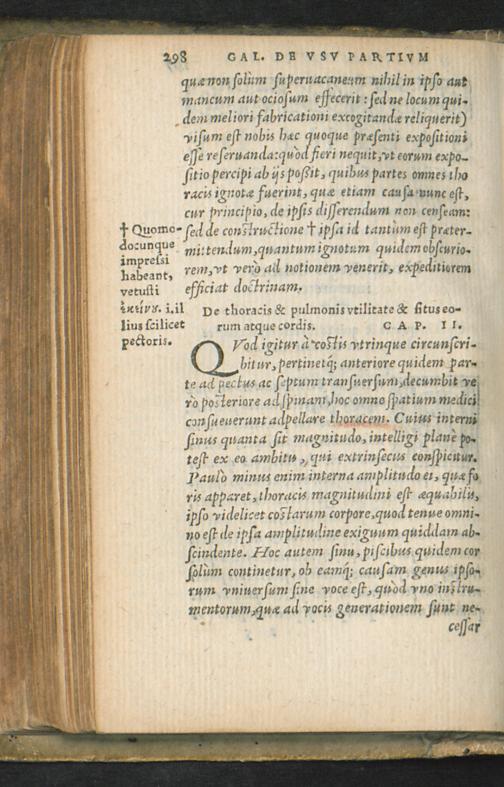 298 GAL. DE VSV PARTIVM
quæ non solùm superuacaneum nihil in ipso aut
mancum aut ociosum effecerit: sed ne locum qui-
dem meliori fabricationi excogitandæ reliquerit)
visum est nobis hæc quoque præsenti expositioni
esse reseruanda: quòd fieri nequit, vt eorum expo-
sitio percipi ab ijs poßit, quibus partes omnes tho
racis ignotæ fuerint, quæ etiam causa nunc est,
cur principio, de ipsis disserendum non censeam:
sed de constructione † ipsa id tantum est præter-
mittendum, quantum ignotum quidem obscurio-
rem, vt verò ad notionem venerit, expeditiorem
efficiat doctrinam.
† Quomo-
docunque
impressi
habeant,
vetusti
ἐκείνου. i. il
lius scilicet
pectoris.
De thoracis & pulmonis vtilitate & situs eo-
rum atque cordis. CAP. II.
QVod igitur à costis vtrinque circunscri-
bitur, pertinetq; anteriore quidem par-
te ad pectus ac septum transuersum, decumbit ve
rò posteriore ad spinam, hoc omne spatium medici
consueuerunt adpellare thoracem. Cuius interni
sinus quanta sit magnitudo, intelligi planè po-
test ex eo ambitu, qui extrinsecus conspicitur.
Paulò minus enim interna amplitudo ei, quæ fo
ris apparet, thoracis magnitudini est æquabilis,
ipso videlicet costarum corpore, quod tenue omni-
no est de ipsa amplitudine exiguum quiddam ab-
scindente. Hoc autem sinu, piscibus quidem cor
solùm continetur, ob eamq; causam genus ipso-
rum vniuersum sine voce est, quòd vno instru-
mentorum, quæ ad vocis generationem sunt ne-
cessar